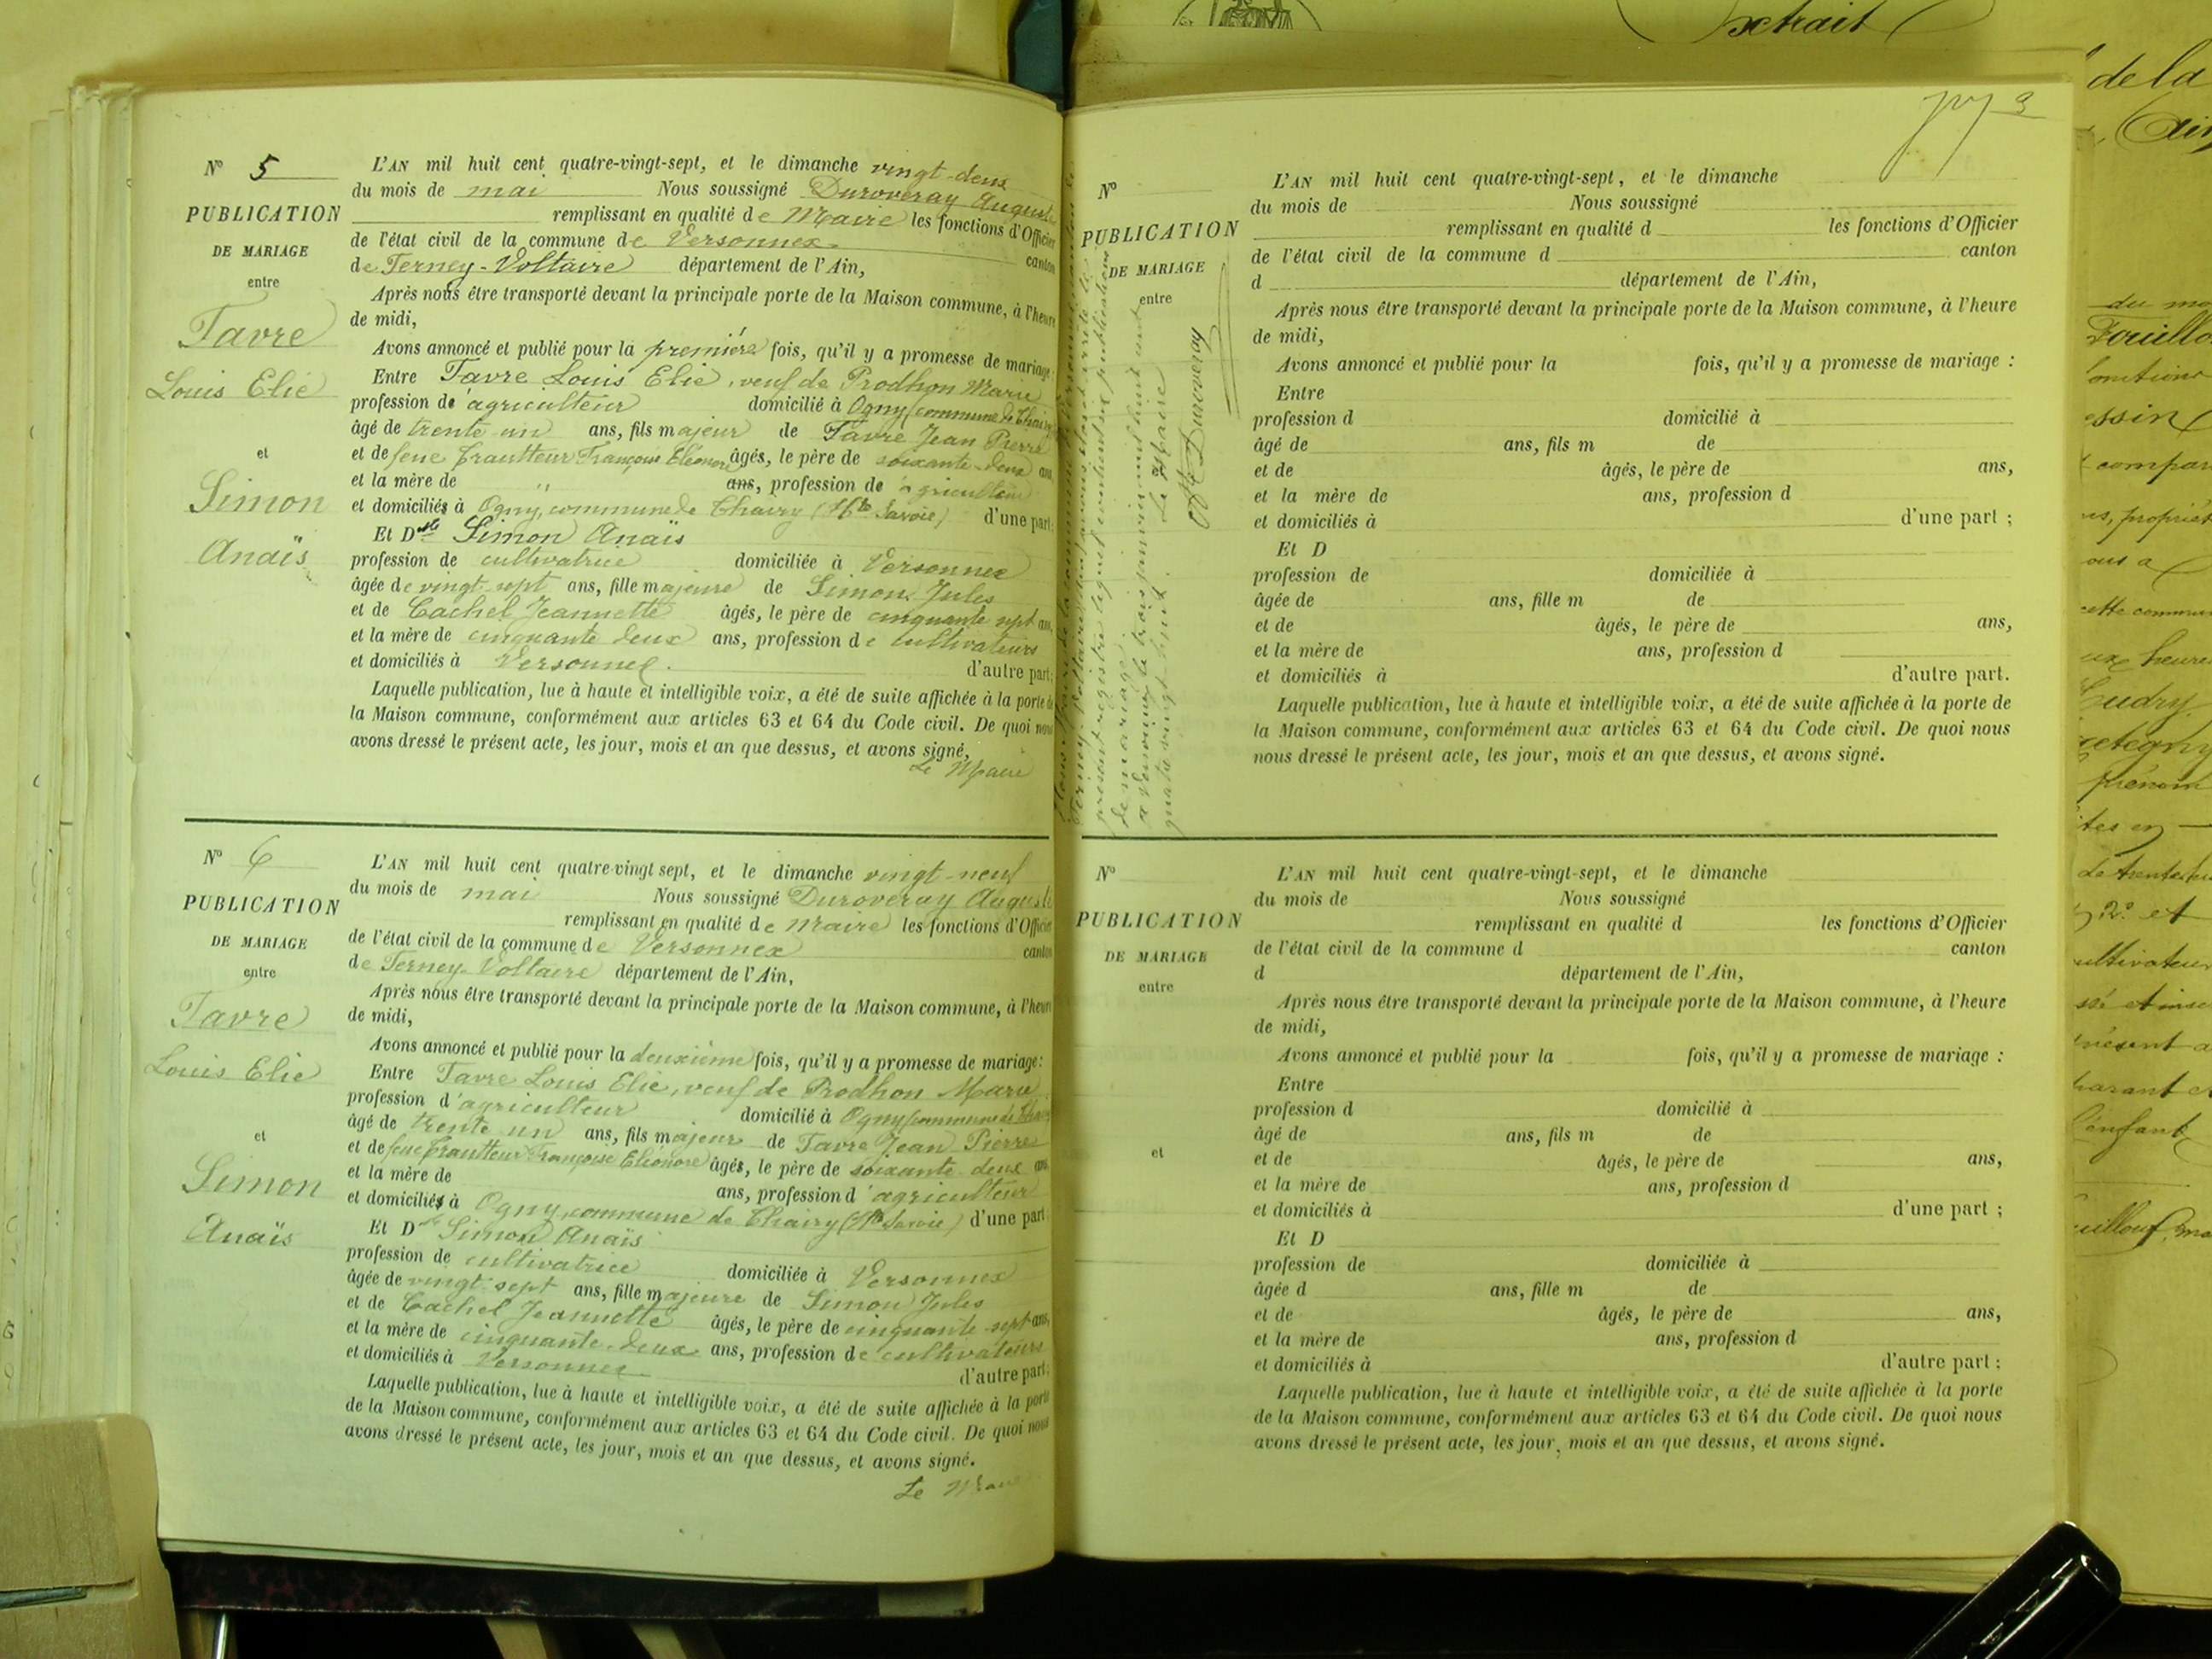 N° 5
PUBLICATION
DE MARIAGE
entre
Favre
Louis Elie
et
Simon
Anaïs
L'AN mil huit cent quatre-vingt-sept, et le dimanche vingt-deux
du mois de mai Nous soussigné Duroveray Auguste
remplissant en qualité de Maire les fonctions d'Officier
de l'état civil de la commune de Versonnex canton
de Ferney-Voltaire département de l'Ain,
Après nous être transporté devant la principale porte de la Maison commune, à l'heure
de midi,
Avons annoncé et publié pour la première fois, qu'il y a promesse de mariage:
Entre Favre Louis Elie, veuf de Prodhon Marie
profession d'agriculteur domicilié à Ogny (commune de
âgé de trente-un ans, fils majeur de Favre Jean Pierre
et de feue Françoise Eléonore âgés, le père de soixante-deux ans
et la mère de " ans, profession d'agriculteur
et domiciliés à Ogny, commune de (Hte Savoie) d'une part;
Et Dlle Simon Anaïs
profession de cultivatrice domiciliée à Versonnex
âgée de vingt-sept ans, fille majeure de Simon Jules
et de Cachel Jeannette âgés, le père de cinquante sept ans,
et la mère de cinquante deux ans, profession de cultivateurs
et domiciliés à Versonnex. d'autre part;
Laquelle publication, lue à haute et intelligible voix, a été de suite affichée à la porte de
la Maison commune, conformément aux articles 63 et 64 du Code civil. De quoi nous
avons dressé le présent acte, les jour, mois et an que dessus, et avons signé,
Le Maire
N° 6
PUBLICATION
DE MARIAGE
entre
Favre
Louis Elie
et
Simon
Anaïs
L'AN mil huit cent quatre-vingt sept, et le dimanche vingt-neuf
du mois de mai Nous soussigné Duroveray Auguste
remplissant en qualité de Maire les fonctions d'Officier
de l'état civil de la commune de Versonnex canton
de Ferney-Voltaire département de l'Ain,
Après nous être transporté devant la principale porte de la Maison commune, à l'heure
de midi,
Avons annoncé et publié pour la deuxième fois, qu'il y a promesse de mariage:
Entre Favre Louis Elie, veuf de Prodhon Marie
profession d'agriculteur domicilié à Ogny (commune de
âgé de trente un ans, fils majeur de Favre Jean Pierre
et de feue Françoise Eléonore âgés, le père de soixante-deux ans
et la mère de ans, profession d'agriculteur
et domiciliés à Ogny, commune de (Hte Savoie) d'une part
Et Dlle Simon Anaïs
profession de cultivatrice domiciliée à Versonnex
âgée de vingt-sept ans, fille majeure de Simon Jules
et de Cachel Jeannette âgés, le père de cinquante-sept ans,
et la mère de cinquante-deux ans, profession de cultivateurs
et domiciliés à Versonnex d'autre part;
Laquelle publication, lue à haute et intelligible voix, a été de suite affichée à la porte
de la Maison commune, conformément aux articles 63 et 64 du Code civil. De quoi nous
avons dressé le présent acte, les jour, mois et an que dessus, et avons signé.
Le Maire
Extrait
3
présent registre
de mariage
à Versonnex le trois janvier mil huit cent
quatre vingt huit. Le Maire
Duroveray
N°
PUBLICATION
DE MARIAGE
entre
L'AN mil huit cent quatre-vingt-sept, et le dimanche
du mois de Nous soussigné
remplissant en qualité d les fonctions d'Officier
de l'état civil de la commune d canton
d département de l'Ain,
Après nous être transporté devant la principale porte de la Maison commune, à l'heure
de midi,
Avons annoncé et publié pour la fois, qu'il y a promesse de mariage :
Entre
profession d domicilié à
âgé de ans, fils m de
et de âgés, le père de ans,
et la mère de ans, profession d
et domiciliés à d'une part ;
Et D
profession de domiciliée à
âgée de ans, fille m de
et de âgés, le père de ans,
et la mère de ans, profession d
et domiciliés à d'autre part.
Laquelle publication, lue à haute et intelligible voix, a été de suite affichée à la porte de
la Maison commune, conformément aux articles 63 et 64 du Code civil. De quoi nous
nous dressé le présent acte, les jour, mois et an que dessus, et avons signé.
N°
PUBLICATION
DE MARIAGE
entre
et
L'AN mil huit cent quatre-vingt-sept, et le dimanche
du mois de Nous soussigné
remplissant en qualité d les fonctions d'Officier
de l'état civil de la commune d canton
d département de l'Ain,
Après nous être transporté devant la principale porte de la Maison commune, à l'heure
de midi,
Avons annoncé et publié pour la fois, qu'il y a promesse de mariage :
Entre
profession d domicilié à
âgé de ans, fils m de
et de âgés, le père de ans,
et la mère de ans, profession d
et domiciliés à d'une part ;
Et D
profession de domiciliée à
âgée d ans, fille m de
et de âgés, le père de ans,
et la mère de ans, profession d
et domiciliés à d'autre part ;
Laquelle publication, lue à haute et intelligible voix, a été de suite affichée à la porte
de la Maison commune, conformément aux articles 63 et 64 du Code civil. De quoi nous
avons dressé le présent acte, les jour, mois et an que dessus, et avons signé.
de la